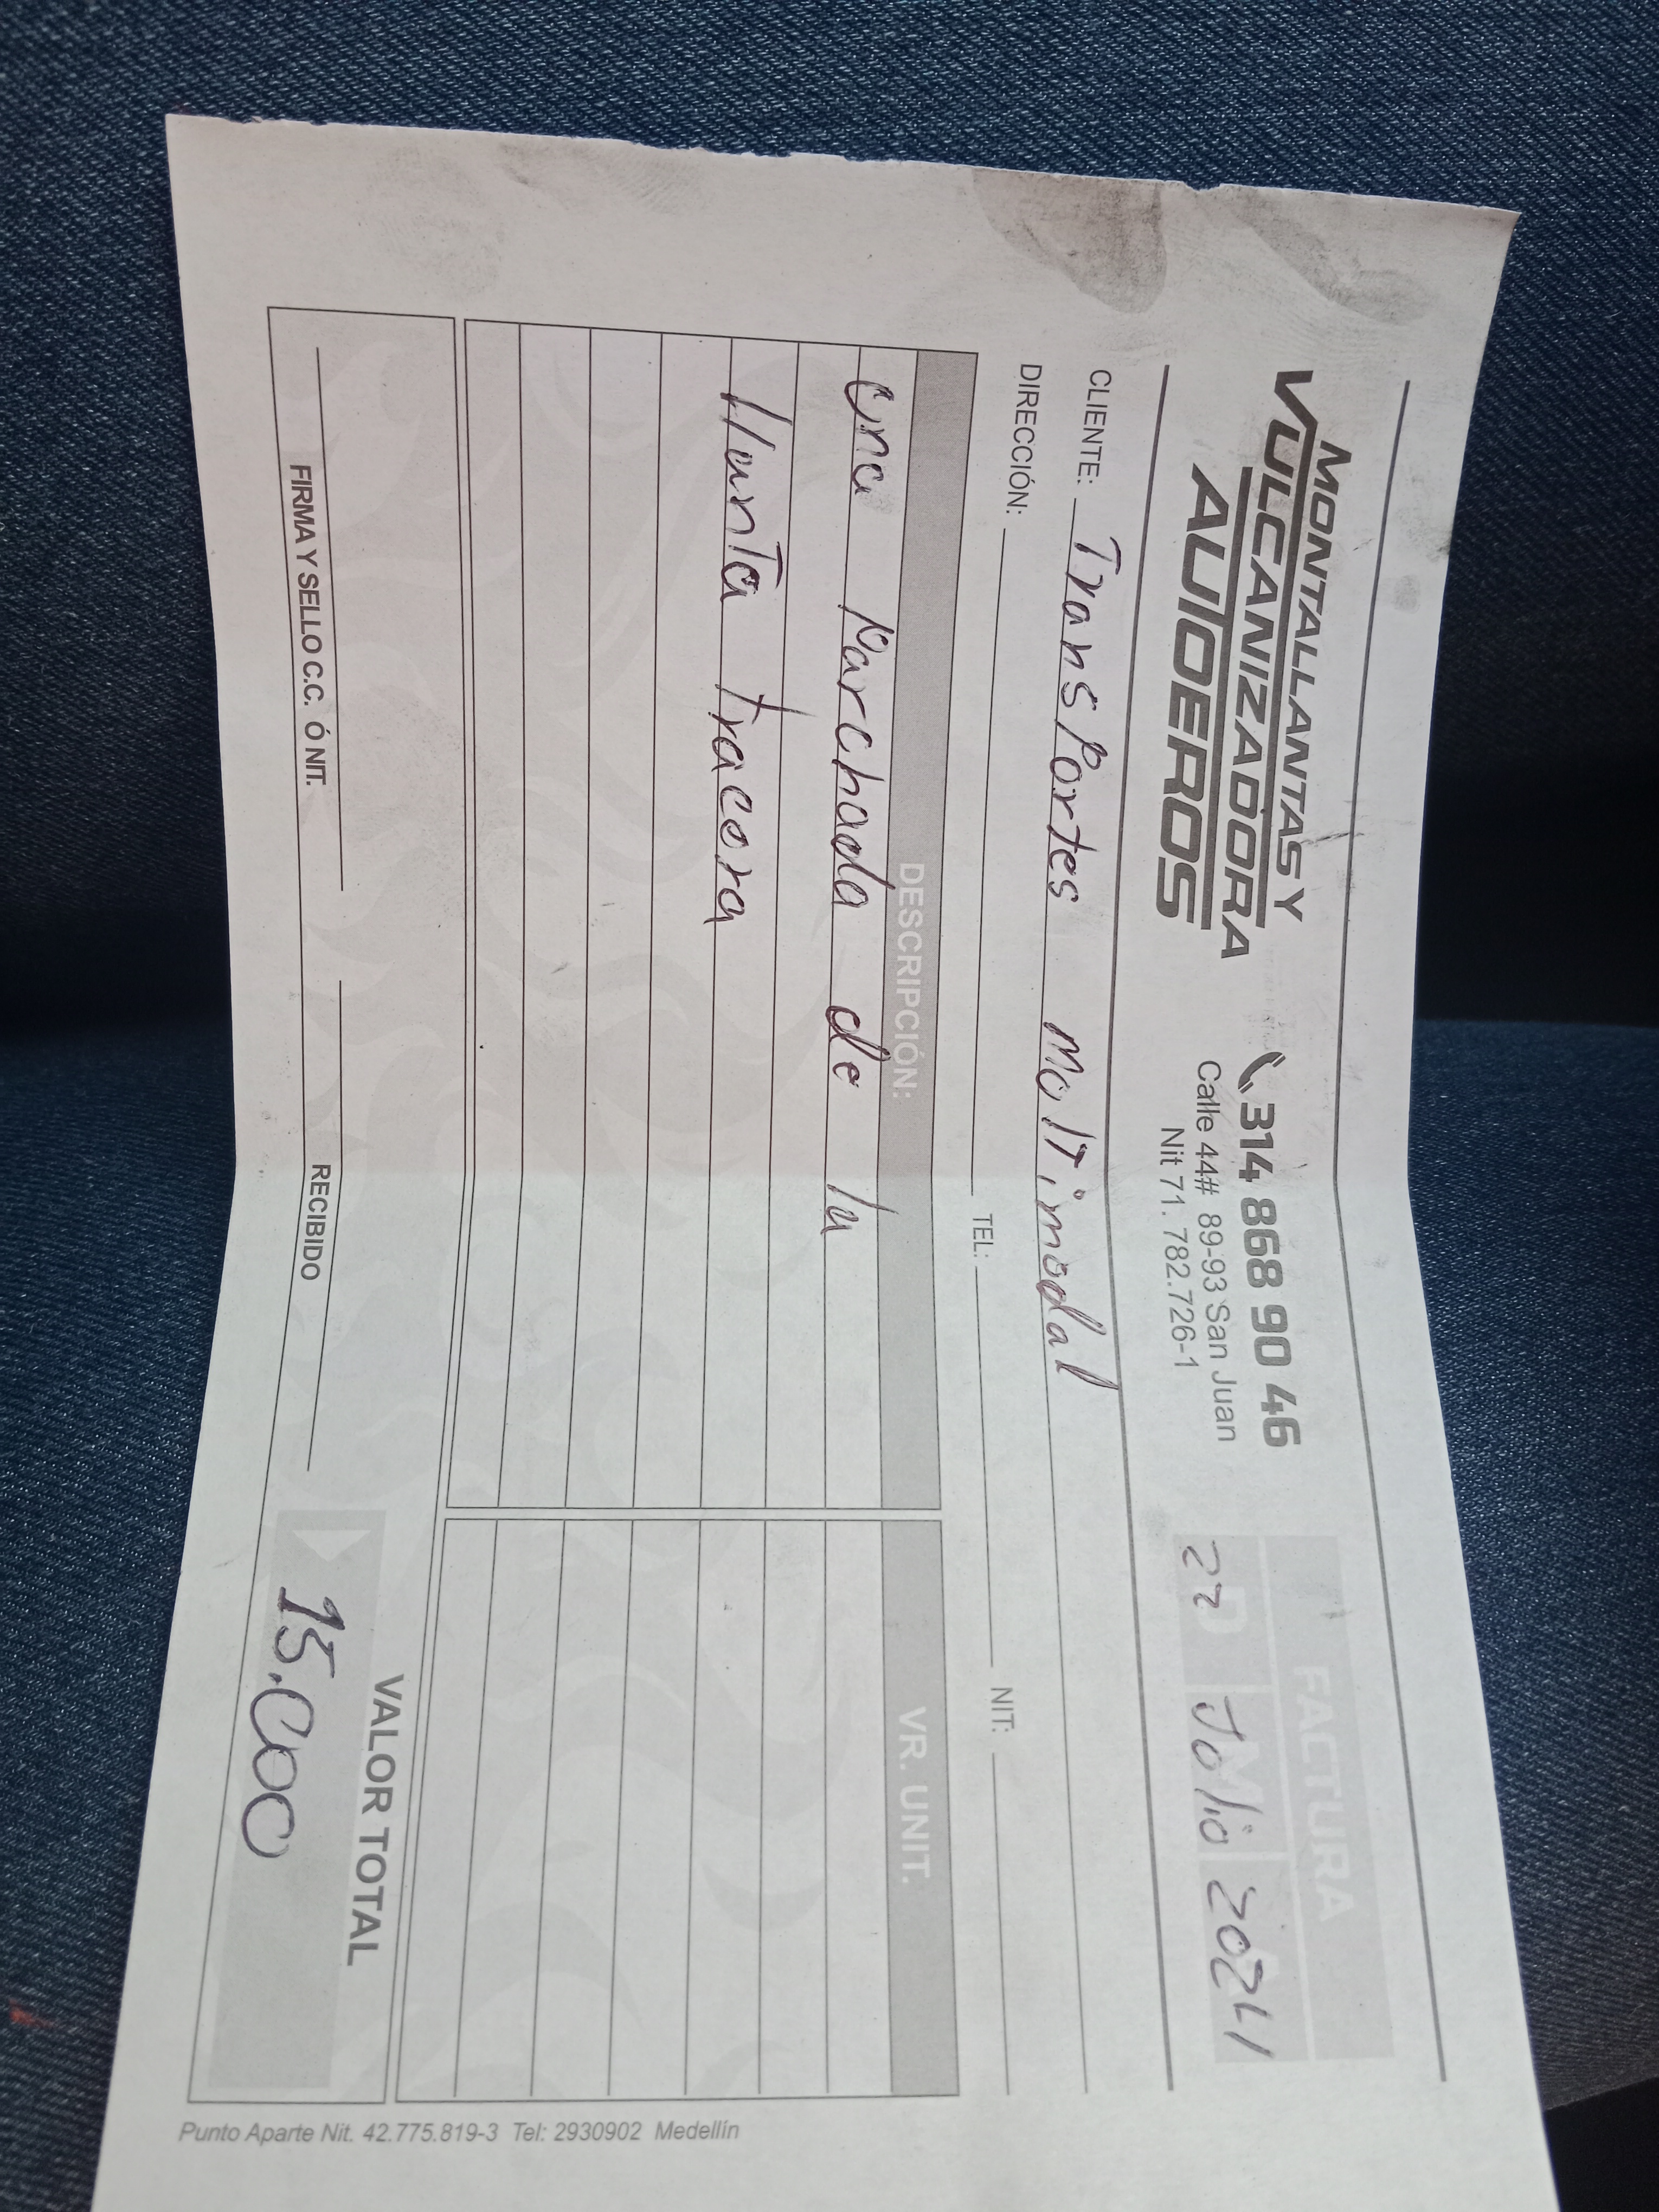 MONTALLANTAS Y
VULCANIZADORA
AUTOEROS
314 868 90 46
Calle 44# 89-93 San Juan
Nit 71. 782.726-1
FACTURA
22 Jolio 2024
CLIENTE: TransPortes MolTimodal
DIRECCIÓN: TEL: NIT:
DESCRIPCIÓN: VR. UNIT.
una Parchada de la
llanta tracera
VALOR TOTAL
15.000
FIRMA Y SELLO C.C. Ó NIT. RECIBIDO
Punto Aparte Nit. 42.775.819-3 Tel: 2930902 Medellín